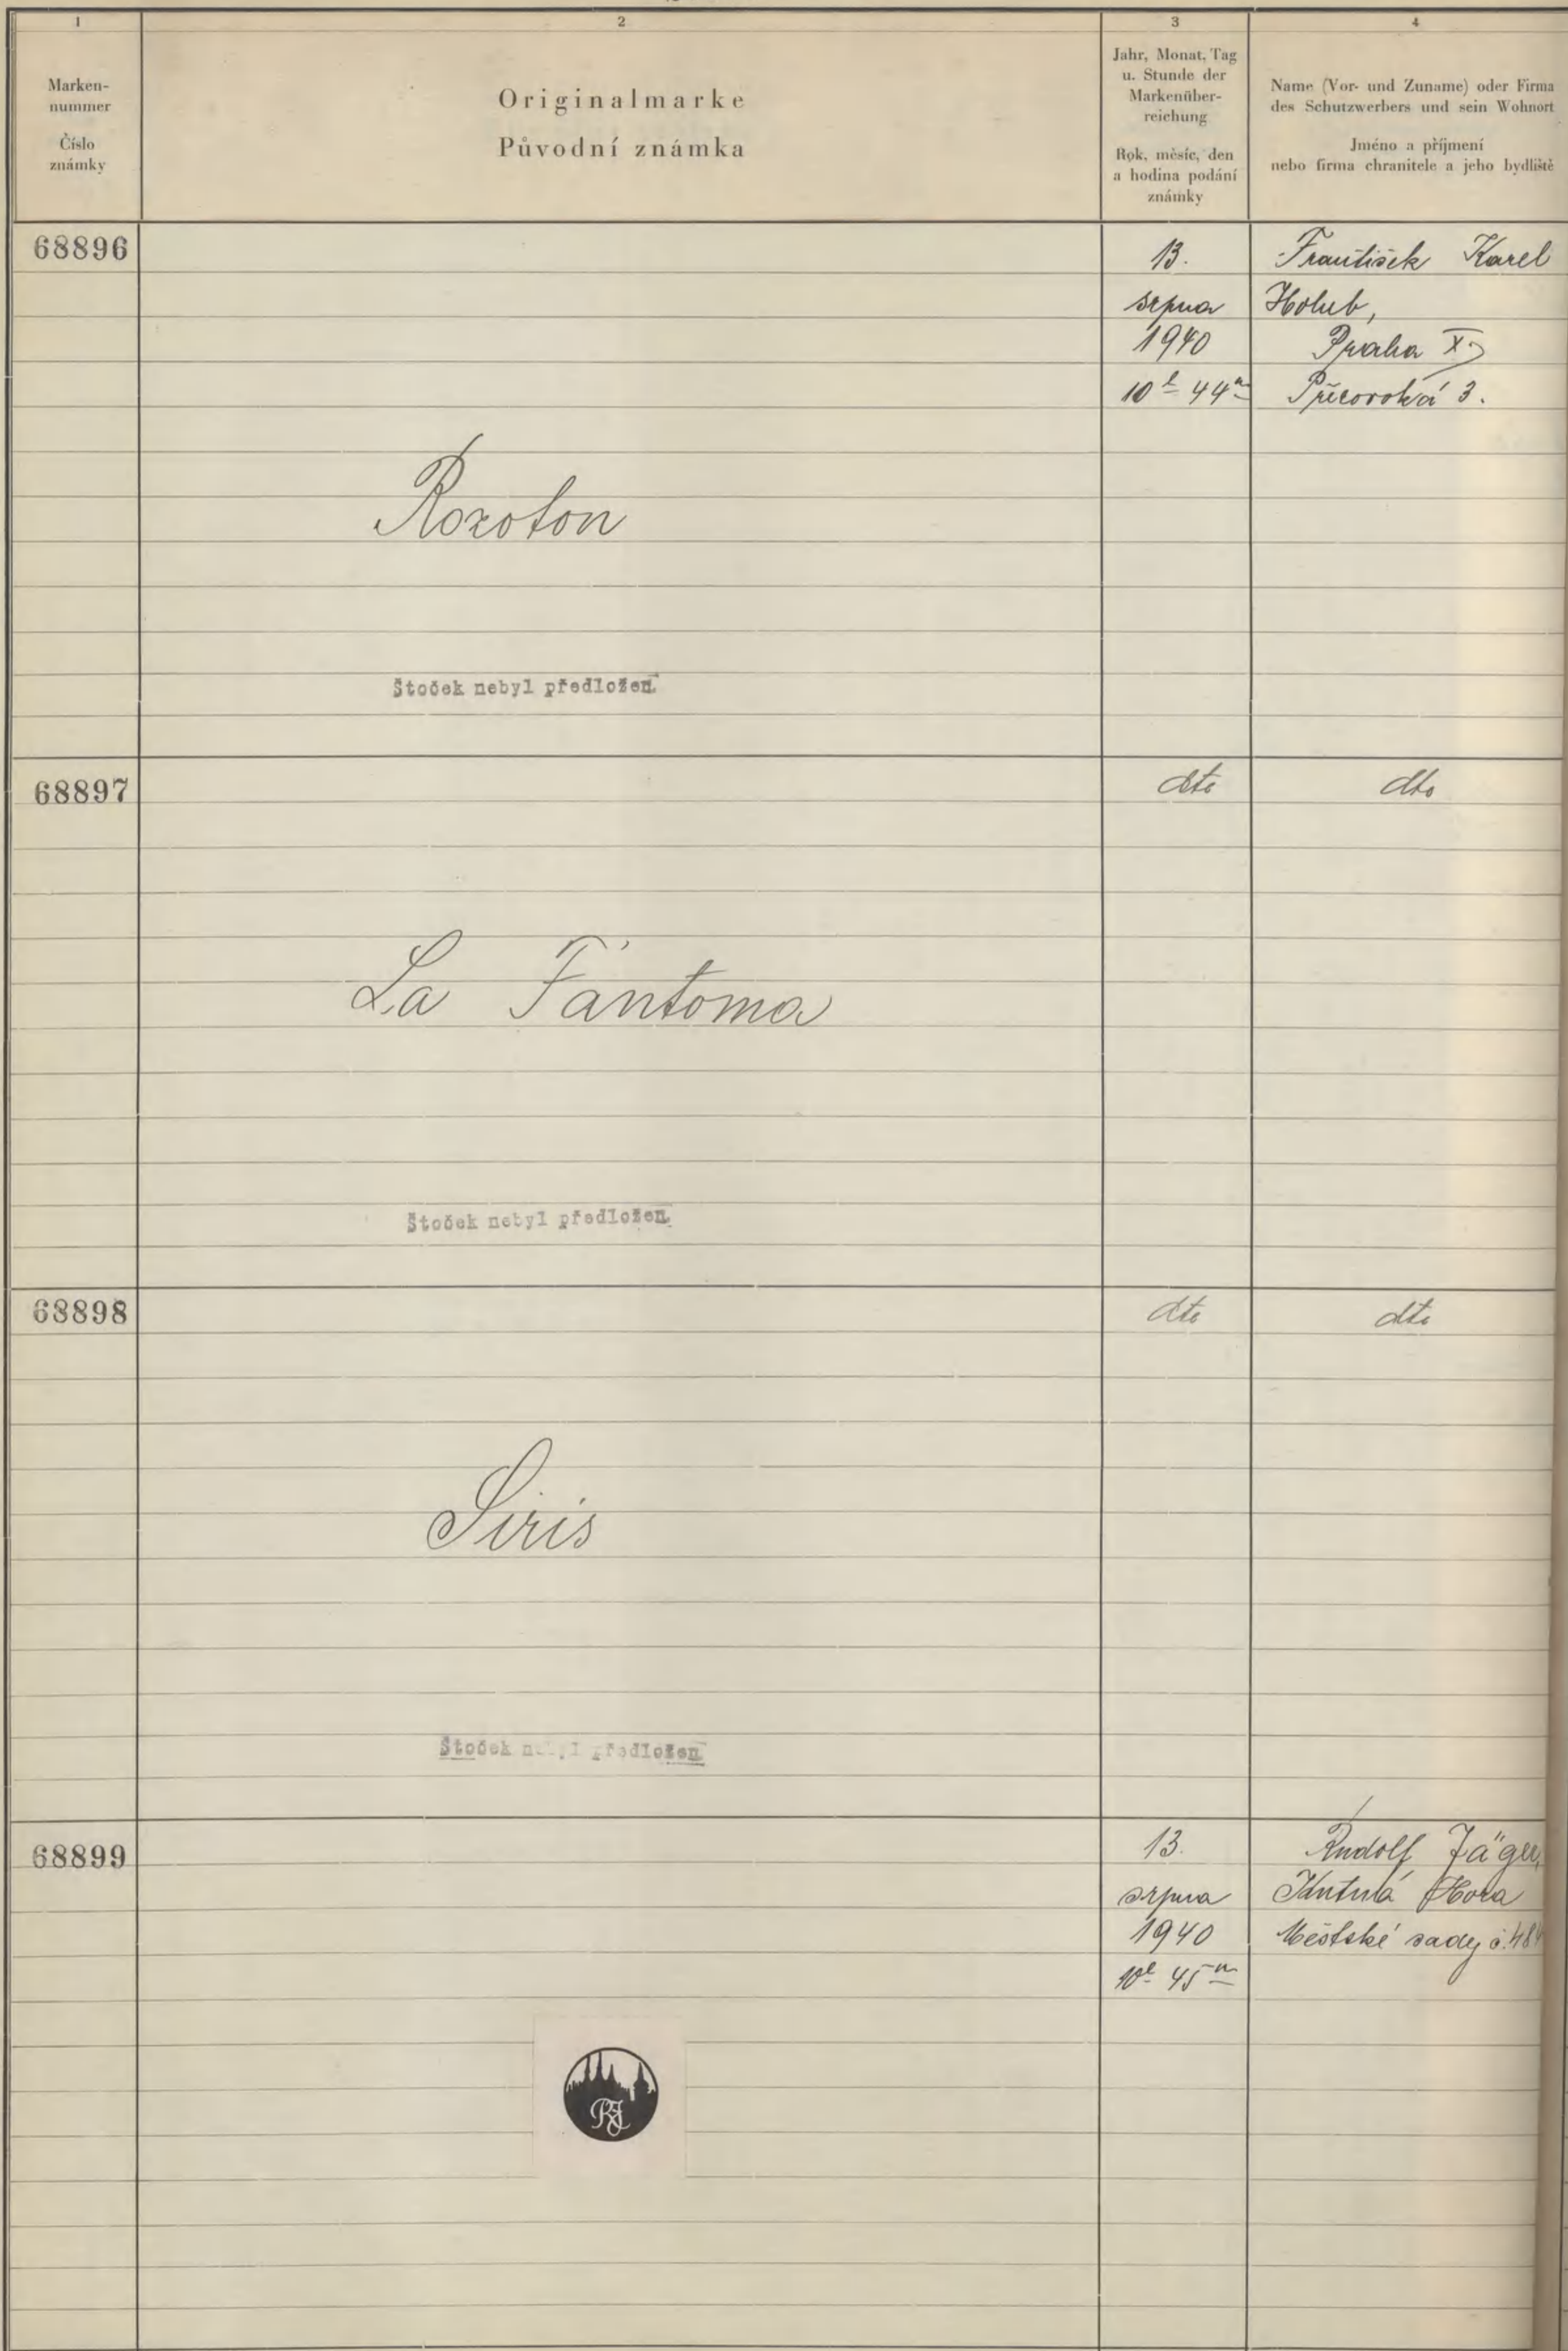 1
2
3
4
Marken-
nummer
Číslo
známky
Originalmarke
Původní známka
Jahr, Monat, Tag
u. Stunde der
Markenüber-
reichung
Rok, měsíc, den
a hodina podání
známky
Name (Vor- und Zuname) oder Firma
des Schutzwerbers und sein Wohnort
Jméno a příjmení
nebo firma chranitele a jeho bydliště
68896
13.
srpna
1940
10h 44m
František Karel
Holub,
Praha X.
3.
Rozoton
Štoček nebyl předložen.
68897
dto
dto
La Fantoma
Štoček nebyl předložen.
68898
dto
dto
Siris
Štoček nebyl předložen
68899
13.
srpna
1940
10h 45m
Rudolf Jäger,
Kutná Hora
Městské sady č. 484
RJ